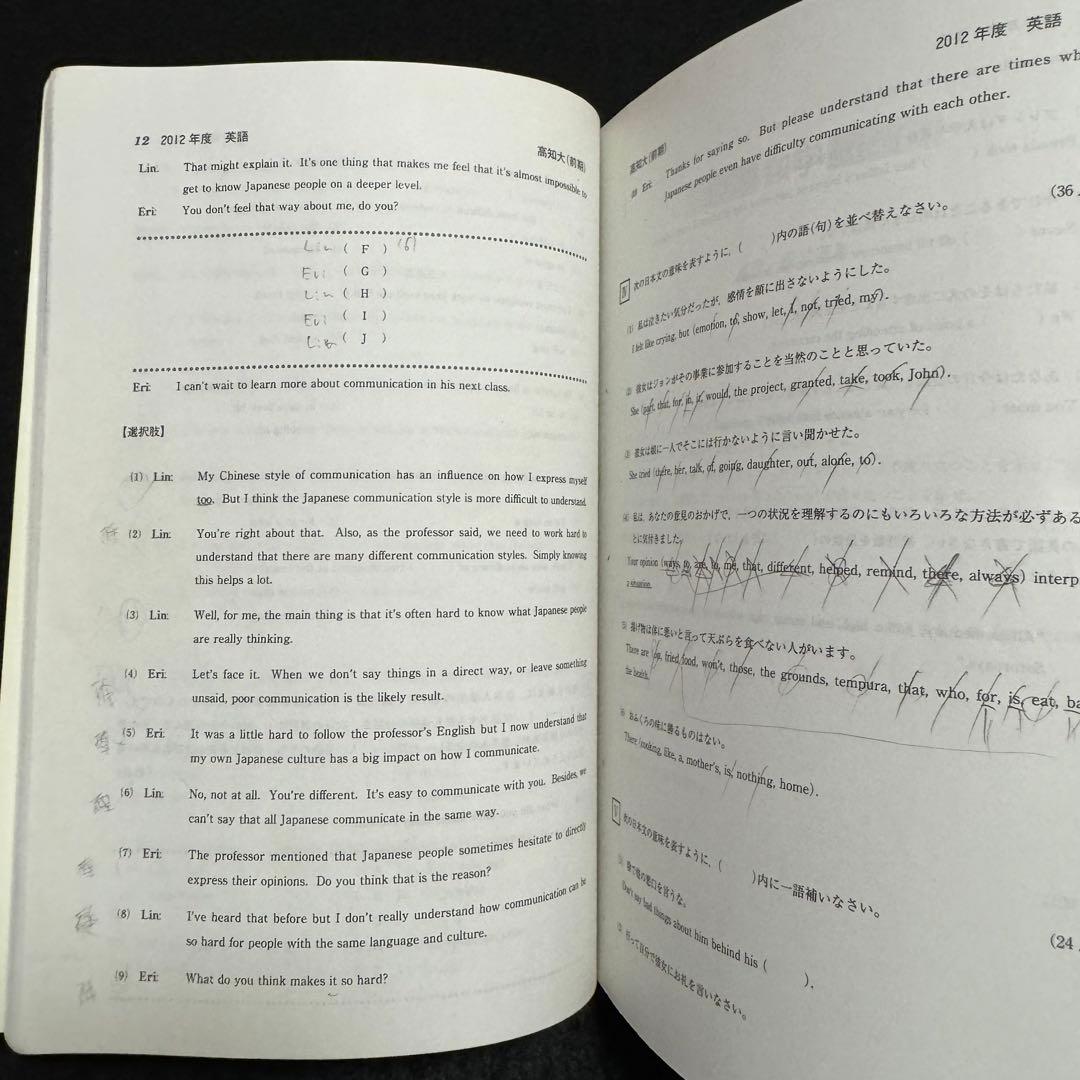 12 2012年度 英語
高知大(前期)
Lin: That might explain it. It's one thing that makes me feel that it's almost impossible to
get to know Japanese people on a deeper level.
Eri: You don't feel that way about me, do you?
Lin ( F ) (6)
Eri ( G )
Lin ( H )
Eri ( I )
Lin ( J )
Eri: I can't wait to learn more about communication in his next class.
【選択肢】
(1) Lin: My Chinese style of communication has an influence on how I express myself
too. But I think the Japanese communication style is more difficult to understand.
(2) Lin: You're right about that. Also, as the professor said, we need to work hard to
understand that there are many different communication styles. Simply knowing
this helps a lot.
(3) Lin: Well, for me, the main thing is that it's often hard to know what Japanese people
are really thinking.
(4) Eri: Let's face it. When we don't say things in a direct way, or leave something
unsaid, poor communication is the likely result.
(5) Eri: It was a little hard to follow the professor's English but I now understand that
my own Japanese culture has a big impact on how I communicate.
(6) Lin: No, not at all. You're different. It's easy to communicate with you. Besides, we
can't say that all Japanese communicate in the same way.
(7) Eri: The professor mentioned that Japanese people sometimes hesitate to directly
express their opinions. Do you think that is the reason?
(8) Lin: I've heard that before but I don't really understand how communication can be
so hard for people with the same language and culture.
(9) Eri: What do you think makes it so hard?
2012年度 英語
高知大(前期)
Eri: Thanks for saying so. But please understand that there are times wh
Japanese people even have difficulty communicating with each other.
(36
Ⅳ 次の日本文の意味を表すように、( )内の語(句)を並べ替えなさい。
(1) 私は泣きたい気分だったが、感情を顔に出さないようにした。
I felt like crying, but (emotion, to, show, let, I, not, tried, my).
(2) 彼女はジョンがその事業に参加することを当然のことと思っていた。
She (part, that, for, in, it, would, the project, granted, take, took, John).
(3) 彼女は娘に一人でそこには行かないように言い聞かせた。
She tried (there, her, talk, of, going, daughter, out, alone, to).
(4) 私は、あなたの意見のおかげで、一つの状況を理解するのにもいろいろな方法が必ずある
とに気付きました。
Your opinion (ways, to, are, to, me, that, different, helped, remind, there, always) interp
a situation.
(5) 揚げ物は体に悪いと言って天ぷらを食べない人がいます。
There are (on, fried food, won't, those, the grounds, tempura, that, who, for, is, eat, ba
the health.
(6) おふくろの味に勝るものはない。
There (cooking, like, a, mother's, is, nothing, home).
Ⅴ 次の日本文の意味を表すように、( )内に一語補いなさい。
(24
(1) 陰で彼の悪口を言うな。
Don't say bad things about him behind his ( ).
(2) 行って自分で彼女にお礼を言いなさい。